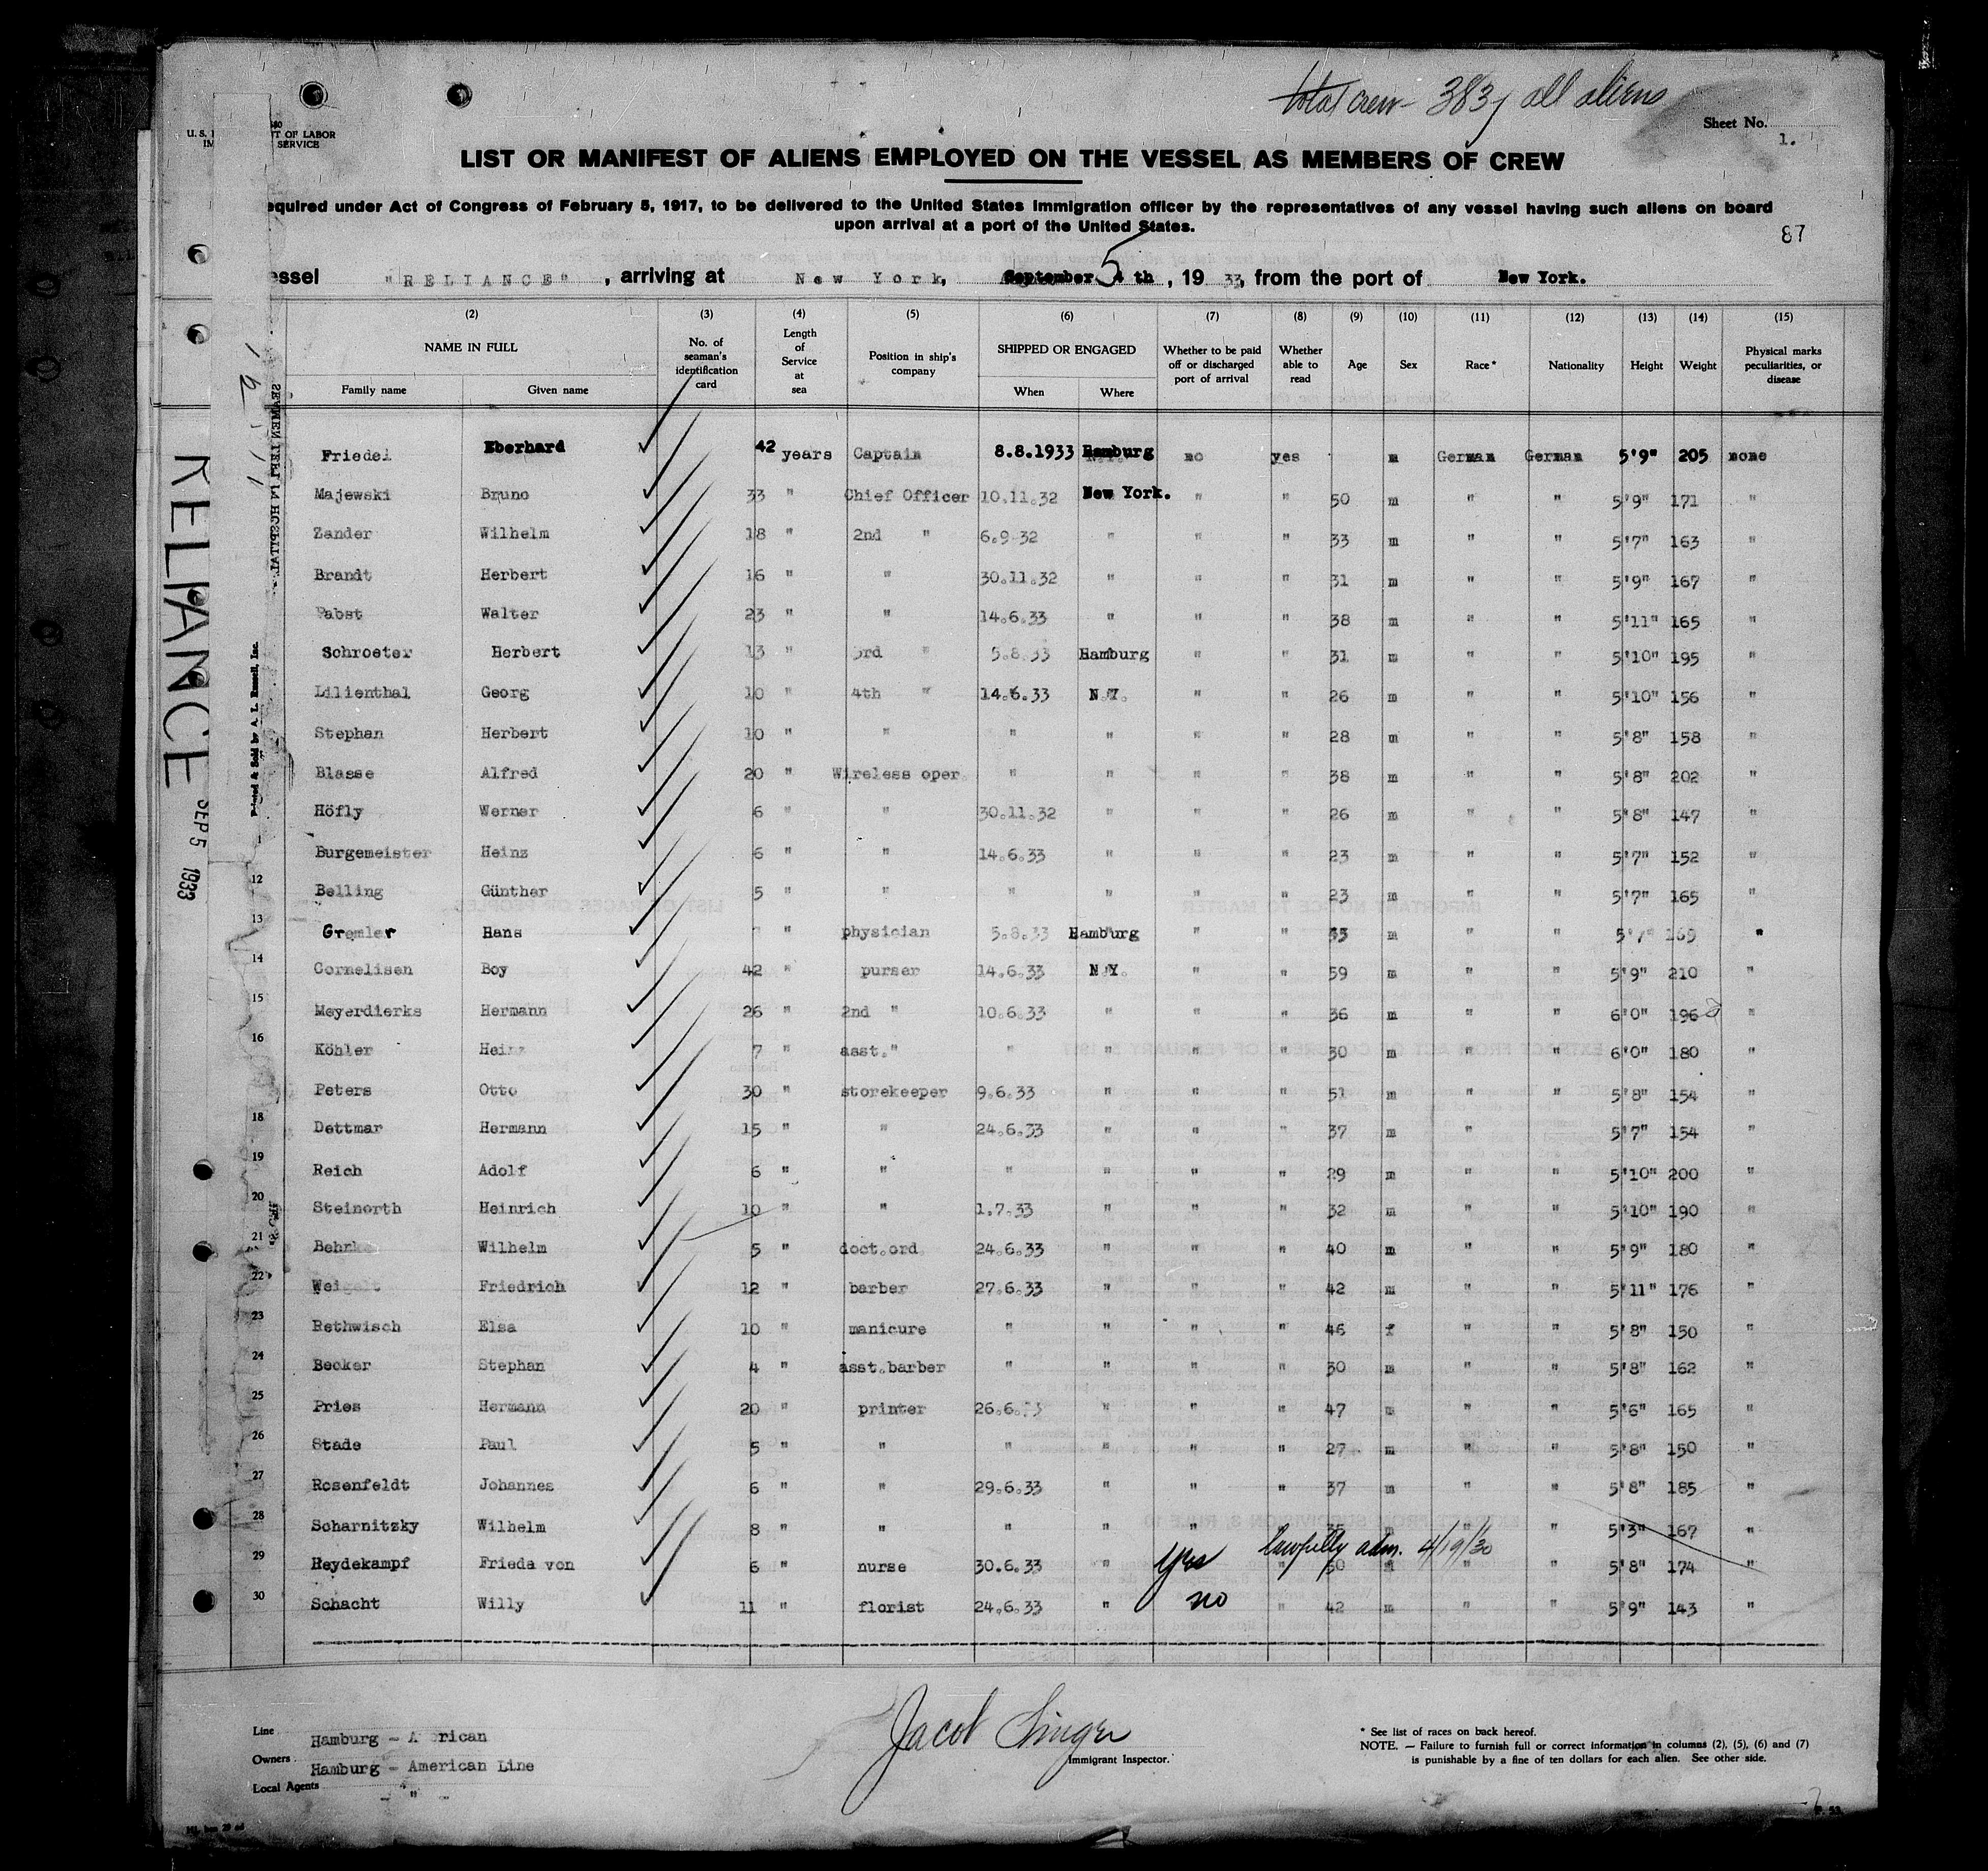 total crew - 383, all aliens
Sheet No. 1.
U. S. OF LABOR
SERVICE
LIST OR MANIFEST OF ALIENS EMPLOYED ON THE VESSEL AS MEMBERS OF CREW
equired under Act of Congress of February 5, 1917, to be delivered to the United States Immigration officer by the representatives of any vessel having such aliens on board
upon arrival at a port of the United States.
87
essel "RELIANCE", arriving at New York, September 5 th, 19 33, from the port of New York.
(2) (3) (4) (5) (6) (7) (8) (9) (10) (11) (12) (13) (14) (15)
NAME IN FULL
Family name Given name
No. of seaman's identification card
Length of Service at sea
Position in ship's company
SHIPPED OR ENGAGED
When Where
Whether to be paid off or discharged port of arrival
Whether able to read
Age Sex Race* Nationality Height Weight
Physical marks peculiarities, or disease
Friedel Eberhard 42 years Captain 8.8.1933 Hamburg no yes m German German 5'9" 205 none
Majewski Bruno 33 " Chief Officer 10.11.32 New York. " " 50 m " " 5'9" 171 "
Zander Wilhelm 18 " 2nd " 6.9.32 " " " 33 m " " 5'7" 163 "
Brandt Herbert 16 " " 30.11.32 " " " 31 m " " 5'9" 167 "
Pabst Walter 23 " " 14.6.33 " " " 38 m " " 5'11" 165 "
Schroeter Herbert 13 " 3rd " 5.8.33 Hamburg " " 31 m " " 5'10" 195 "
Lilienthal Georg 10 " 4th " 14.6.33 N.Y. " " 26 m " " 5'10" 156 "
Stephan Herbert 10 " " " " " " 28 m " " 5'8" 158 "
Blasse Alfred 20 " Wireless oper. " " " " 38 m " " 5'8" 202 "
Höfly Werner 6 " " 30.11.32 " " " 26 m " " 5'8" 147 "
Burgemeister Heinz 6 " " 14.6.33 " " " 23 m " " 5'7" 152 "
12 Belling Günther 5 " " " " " " 23 m " " 5'7" 165 "
13 Gremler Hans " physician 5.8.33 Hamburg " " 33 m " " 5'7" 169 "
14 Cornelisen Boy 42 " purser 14.6.33 N.Y. " " 59 m " " 5'9" 210 "
15 Meyerdierks Hermann 26 " 2nd " 10.6.33 " " " 36 m " " 6'0" 196 "
16 Köhler Heinz 7 " asst. " " " " " 30 m " " 6'0" 180 "
Peters Otto 30 " storekeeper 9.6.33 " " " 51 m " " 5'8" 154 "
18 Dettmar Hermann 15 " " 24.6.33 " " " 37 m " " 5'7" 154 "
19 Reich Adolf 6 " " " " " " 29 m " " 5'10" 200 "
20 Steinorth Heinrich 10 " " 1.7.33 " " " 32 m " " 5'10" 190 "
21 Behnke Wilhelm 5 " doct.ord. 24.6.33 " " " 40 m " " 5'9" 180 "
22 Weigelt Friedrich 12 " barber 27.6.33 " " " 42 m " " 5'11" 176 "
23 Rethwisch Elsa 10 " manicure " " " " 46 f " " 5'8" 150 "
24 Becker Stephan 4 " asst.barber " " " " 30 m " " 5'8" 162 "
25 Pries Hermann 20 " printer 26.6.33 " " " 47 m " " 5'6" 165 "
26 Stade Paul 5 " " " " " " 27 m " " 5'8" 150 "
27 Rosenfeldt Johannes 6 " " 29.6.33 " " " 37 m " " 5'8" 185 "
28 Scharnitzky Wilhelm 8 " " " " " " 35 m " " 5'3" 167 "
29 Heydekampf Frieda von 6 " nurse 30.6.33 " yes lawfully adm. 4/19/30 50 5'8" 174 "
30 Schacht Willy 11 " florist 24.6.33 " no " 42 m " " 5'9" 143 "
Line Hamburg - American
Owners Hamburg - American Line
Local Agents - " -
Jacob Singer
Immigrant Inspector.
* See list of races on back hereof.
NOTE. — Failure to furnish full or correct information in columns (2), (5), (6) and (7)
is punishable by a fine of ten dollars for each alien. See other side.
RELIANCE SEP 5 1933
SEAMEN LEFT IN HOSPITAL
Printed & Sold by A. L. Russell, Inc.